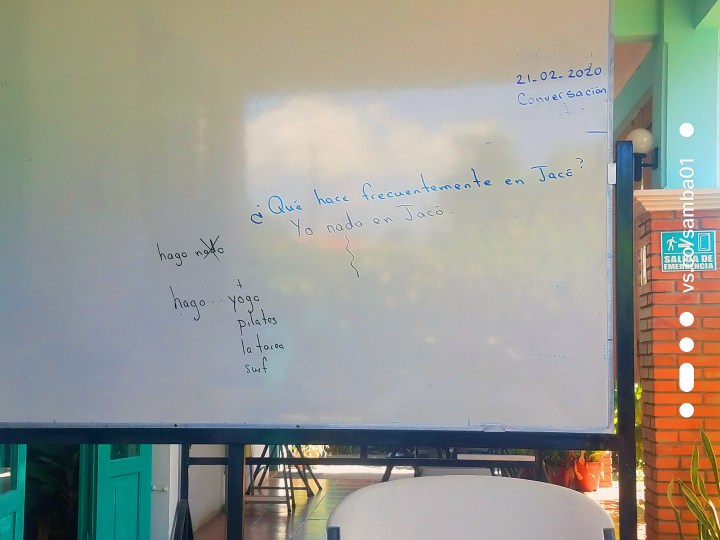 21-02-2020
Conversación
¿Qué hace frecuentemente en Jacó?
Yo nado en Jacó.
hago nado
hago... yoga
pilates
la tarea
surf
SALIDA DE
EMERGENCIA